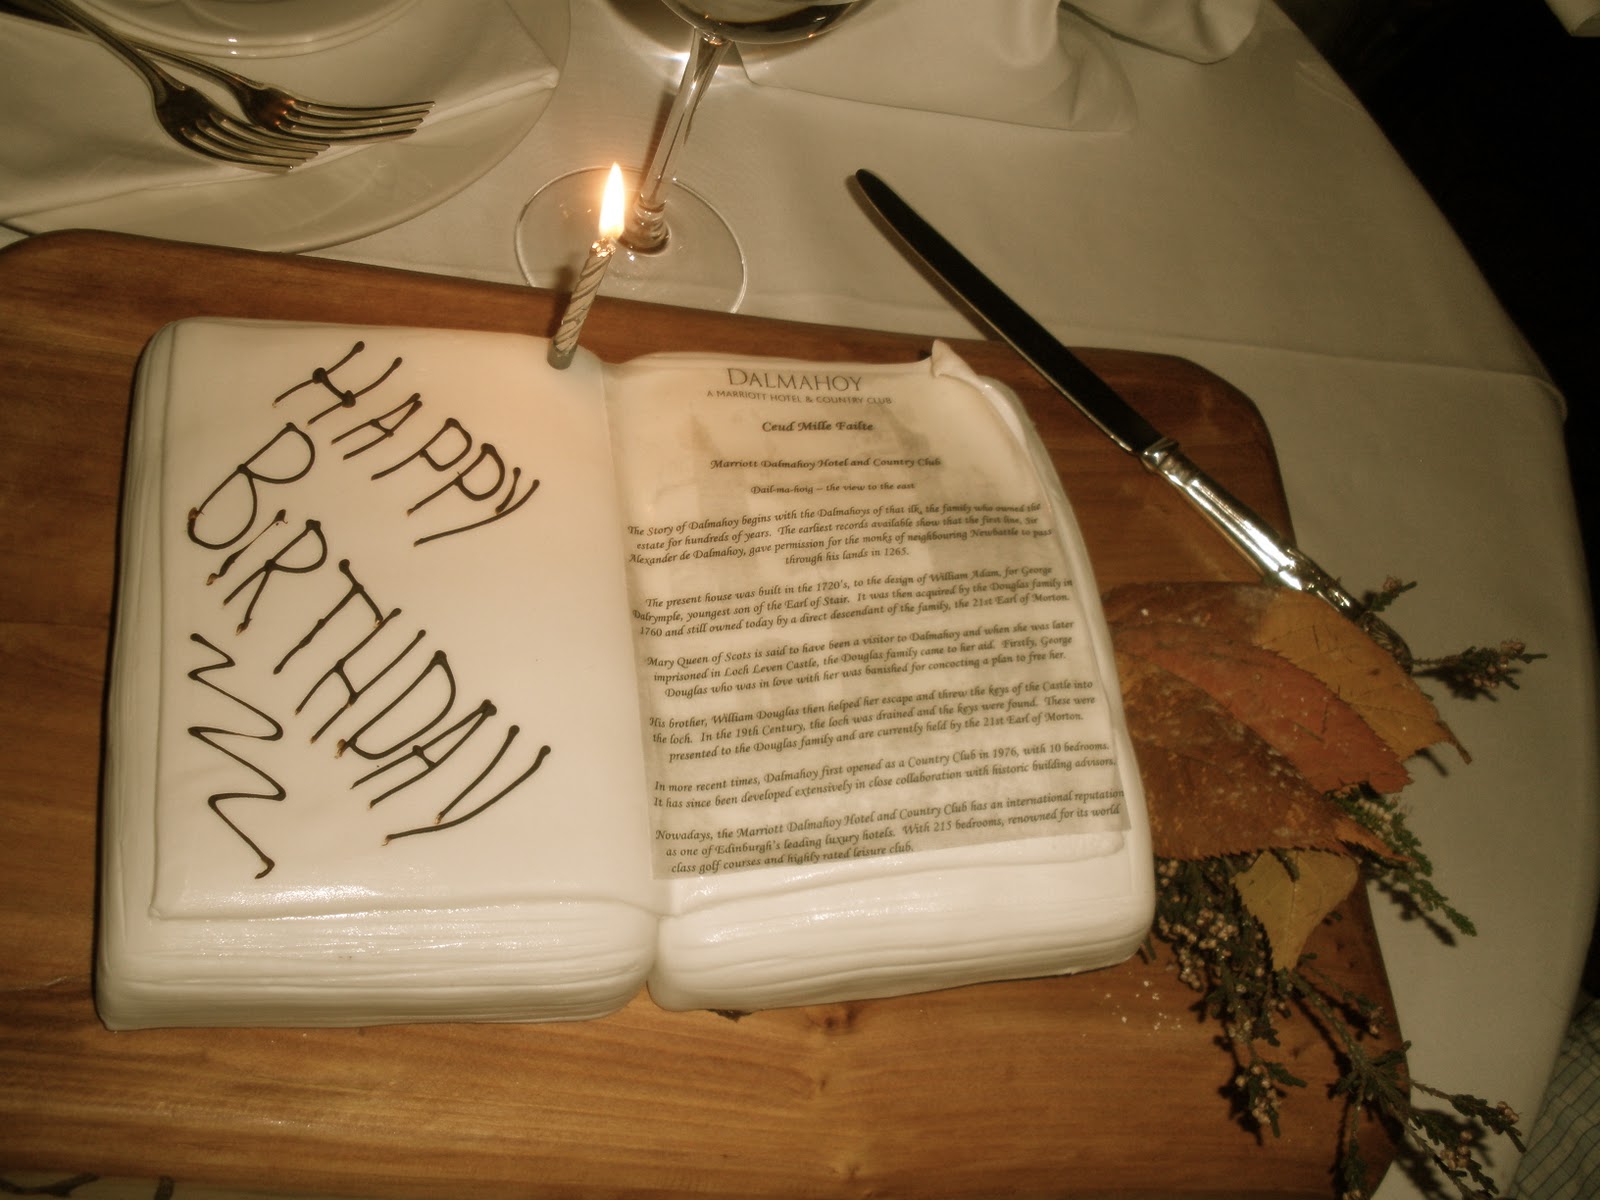 HAPPY
BIRTHDAY
DALMAHOY
A MARRIOTT HOTEL & COUNTRY CLUB
Ceud Mille Failte
Marriott Dalmahoy Hotel and Country Club
Dail-ma-hoig – the view to the east
The Story of Dalmahoy begins with the Dalmahoys of that ilk, the family who owned the
estate for hundreds of years. The earliest records available show that the first line, Sir
Alexander de Dalmahoy, gave permission for the monks of neighbouring Newbattle to pass
through his lands in 1265.
The present house was built in the 1720's, to the design of William Adam, for George
Dalrymple, youngest son of the Earl of Stair. It was then acquired by the Douglas family in
1760 and still owned today by a direct descendant of the family, the 21st Earl of Morton.
Mary Queen of Scots is said to have been a visitor to Dalmahoy and when she was later
imprisoned in Loch Leven Castle, the Douglas family came to her aid. Firstly, George
Douglas who was in love with her was banished for concocting a plan to free her.
His brother, William Douglas then helped her escape and threw the keys of the Castle into
the loch. In the 19th Century, the loch was drained and the keys were found. These were
presented to the Douglas family and are currently held by the 21st Earl of Morton.
In more recent times, Dalmahoy first opened as a Country Club in 1976, with 10 bedrooms.
It has since been developed extensively in close collaboration with historic building advisors.
Nowadays, the Marriott Dalmahoy Hotel and Country Club has an international reputation
as one of Edinburgh's leading luxury hotels. With 215 bedrooms, renowned for its world
class golf courses and highly rated leisure club.